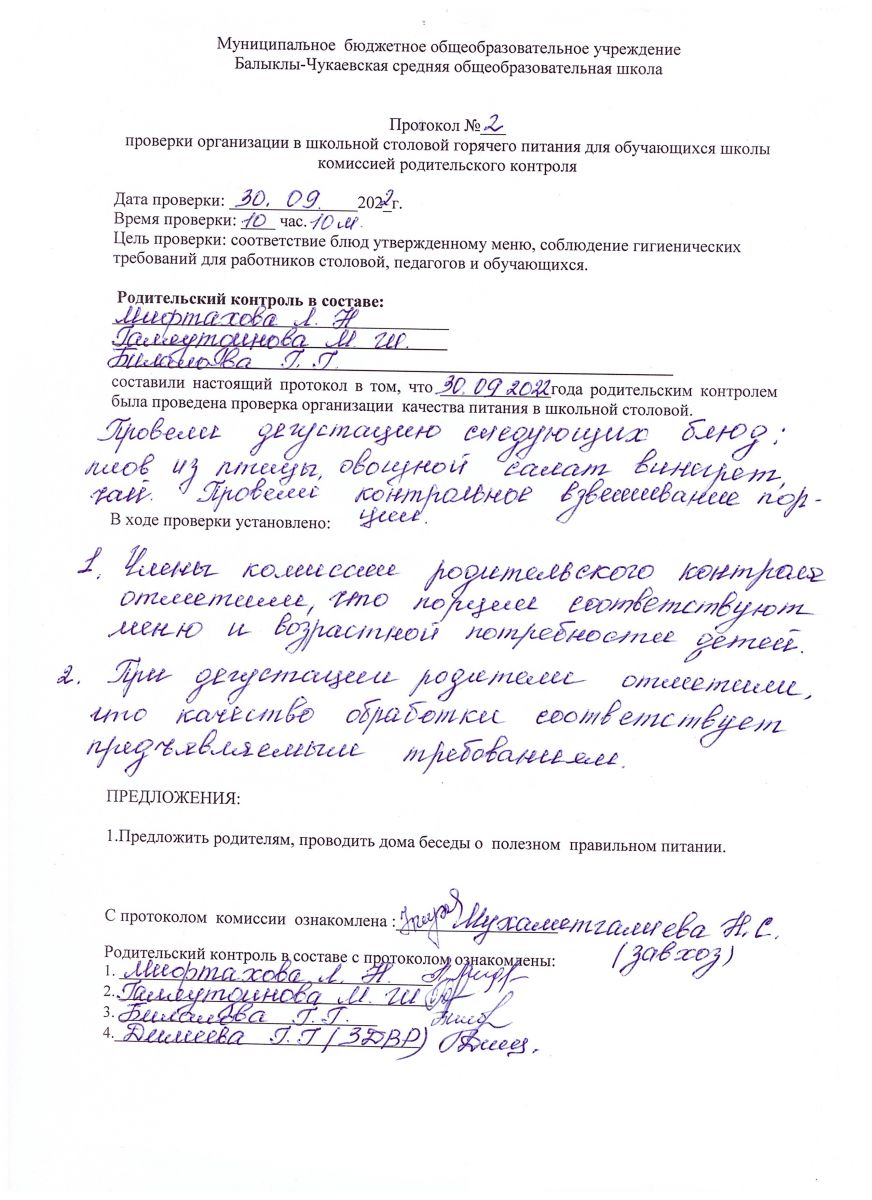 Муниципальное бюджетное общеобразовательное учреждение
Балыклы-Чукаевская средняя общеобразовательная школа
Протокол № 2
проверки организации в школьной столовой горячего питания для обучающихся школы
комиссией родительского контроля
Дата проверки: 30. 09. 2022 г.
Время проверки: 10 час. 10 м.
Цель проверки: соответствие блюд утвержденному меню, соблюдение гигиенических
требований для работников столовой, педагогов и обучающихся.
Родительский контроль в составе:
Мифтахова Л. Н
Гамутдинова М. Ш.
Билалова Г. Г.
составили настоящий протокол в том, что 30.09 2022 года родительским контролем
была проведена проверка организации качества питания в школьной столовой.
Провели дегустацию следующих блюд:
плов из птицы, овощной салат винегрет,
чай. Провели контрольное взвешивание пор-
ции.
В ходе проверки установлено:
1. Члены комиссии родительского контроля
отметили, что порции соответствуют
меню и возрастной потребности детей.
2. При дегустации родители отметили,
что качество обработки соответствует
предъявляемым требованиям.
ПРЕДЛОЖЕНИЯ:
1.Предложить родителям, проводить дома беседы о полезном правильном питании.
С протоколом комиссии ознакомлена : Мухаметгалиева Н. С.
(завхоз)
Родительский контроль в составе с протоколом ознакомлены:
1. Мифтахова Л. Н.
2. Гамутдинова М. Ш
3. Билалова Г. Г.
4. Димеева Г. Г (ЗДВР)